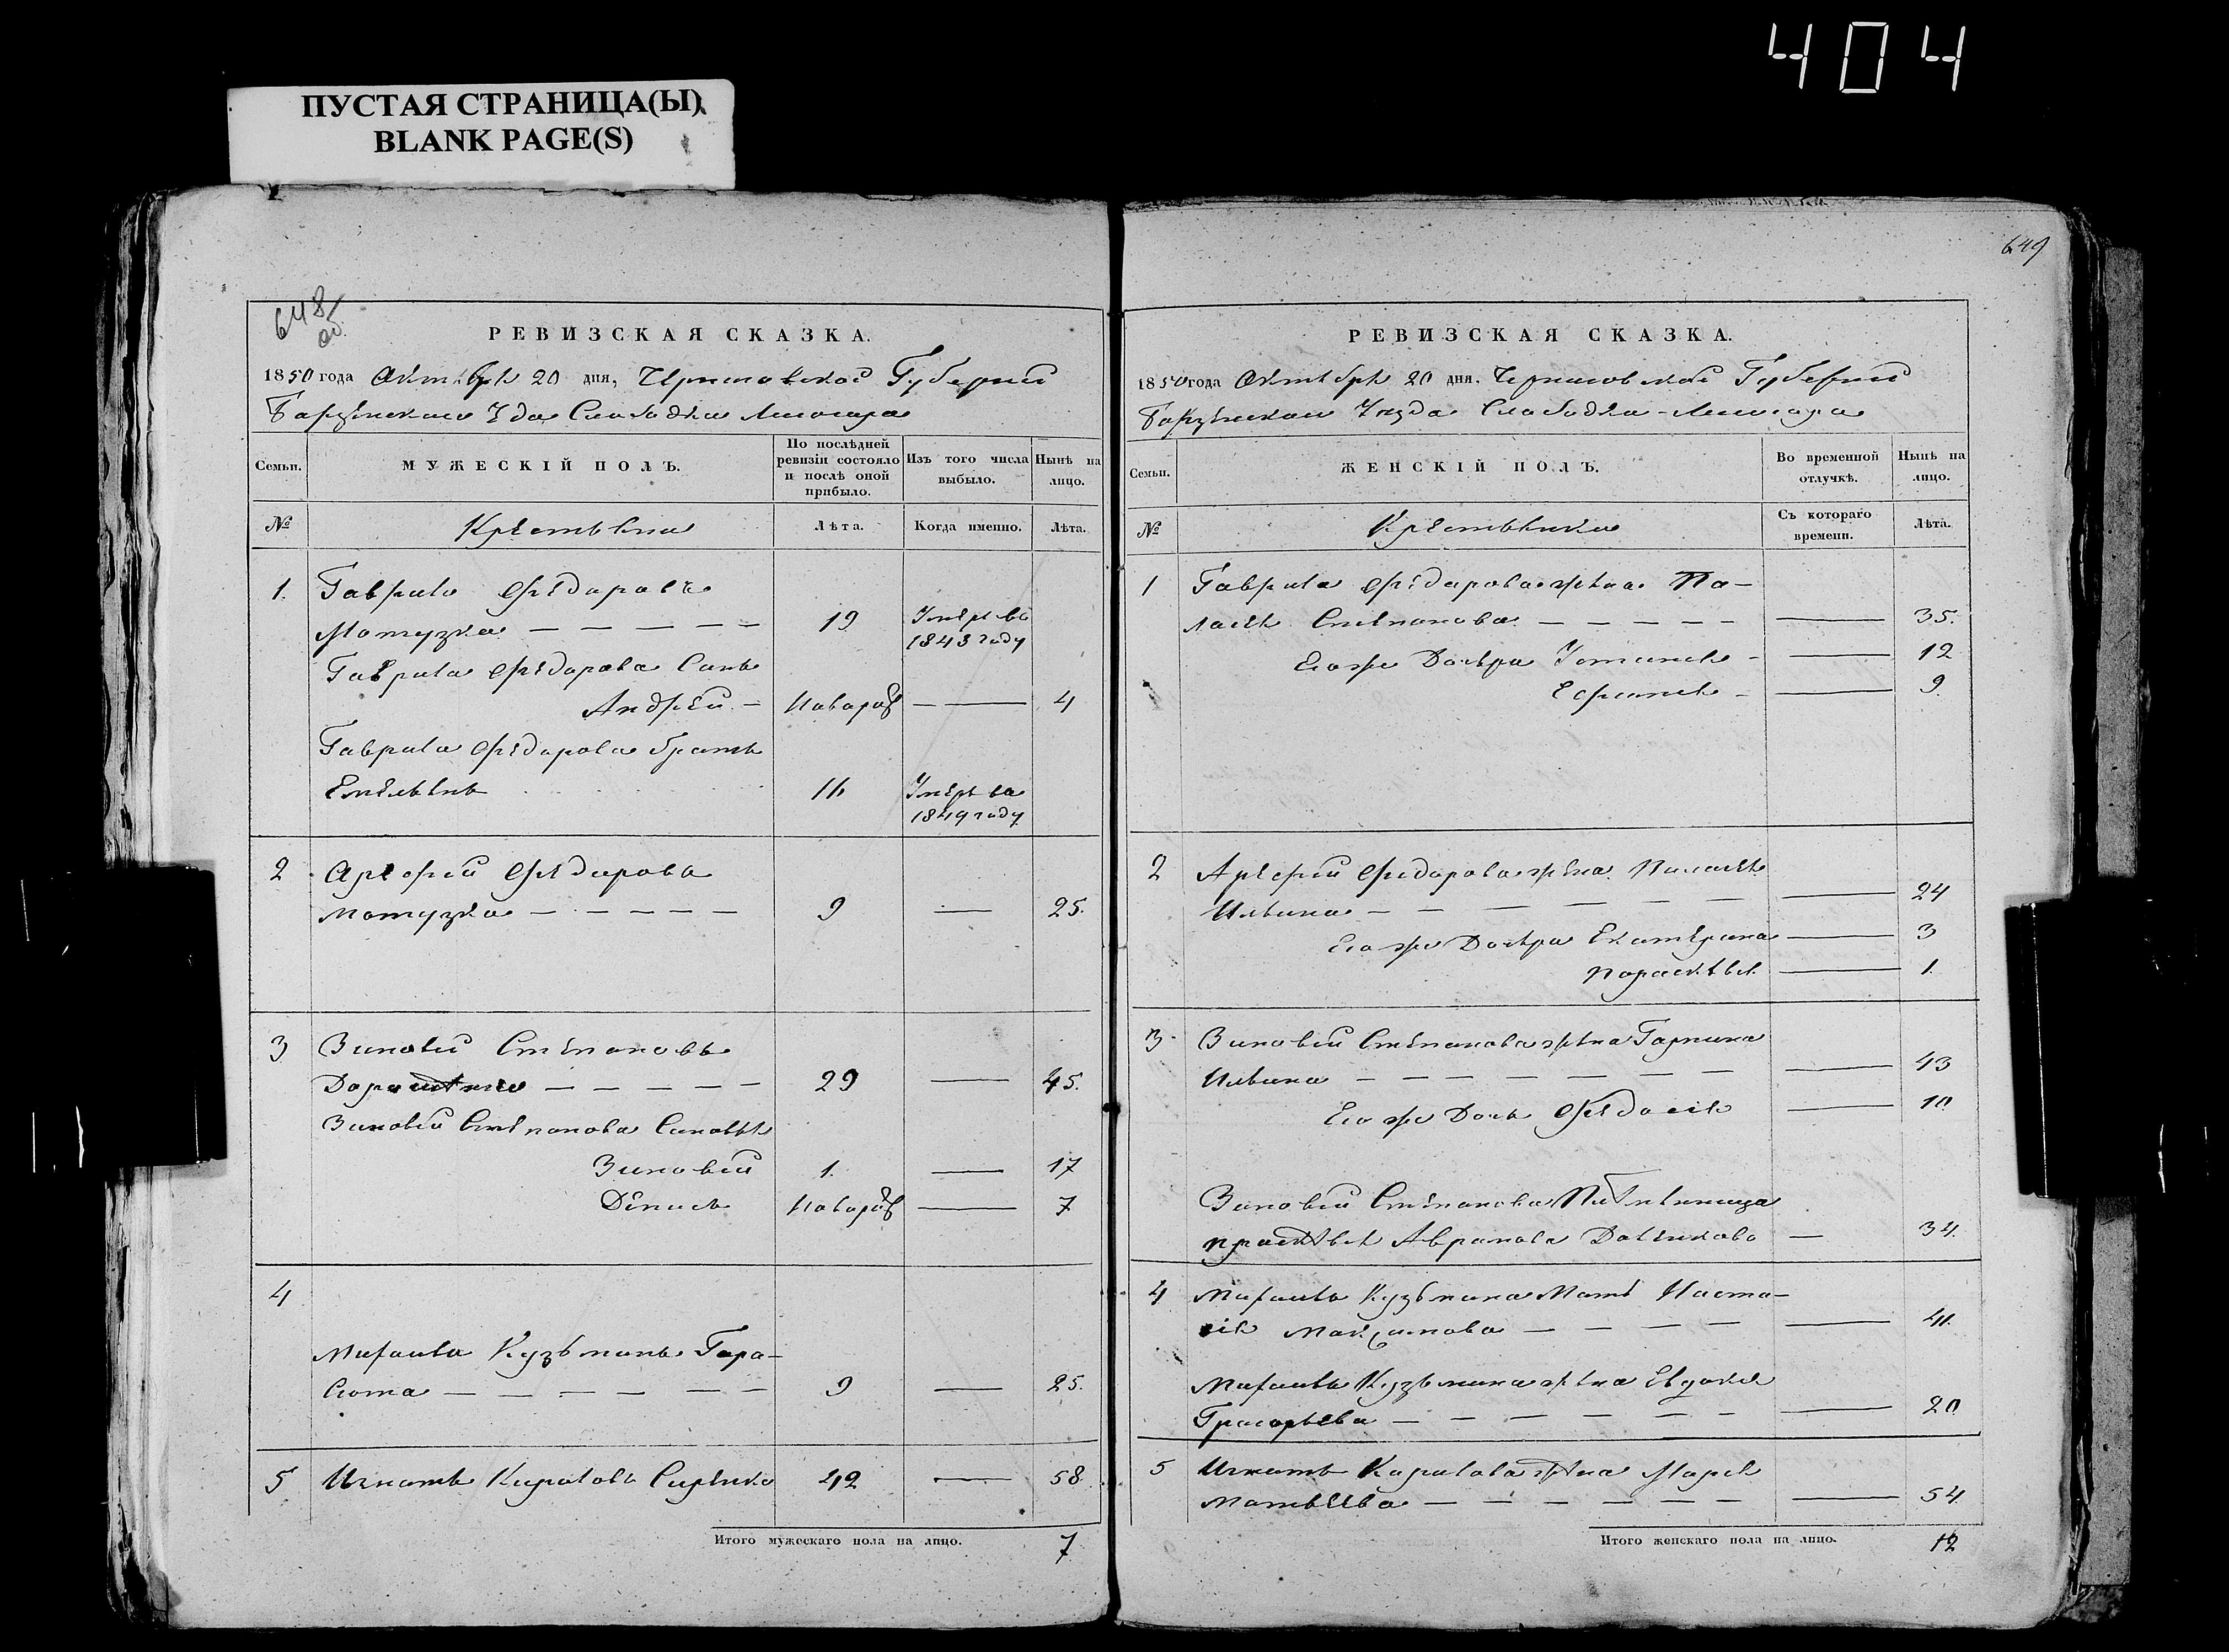 404
ПУСТАЯ СТРАНИЦА(Ы)
BLANK PAGE(S)
648
об.
РЕВИЗСКАЯ СКАЗКА.
1850 года Октября 20 дня, Черниговской Губернии
Борзенскаго Уѣзда Слободка
Семьи.
МУЖЕСКІЙ ПОЛЪ.
По послѣдней ревизіи состояло и послѣ оной прибыло.
Изъ того числа выбыло.
Нынѣ на лицо.
№
Крестьяне
Лѣта.
Когда именно.
Лѣта.
1. Гаврило Федоровъ
Мотузка — — — — — 19 Умеръ въ 1843 году
Гаврила Федорова Сынъ
Андрей — Новорож — — 4
Гаврила Федорова братъ
Емельянъ 16 Умеръ въ 1849 году
2 Арефій Федоровъ
Мотузка — — — — — 9 — 25.
3 Зиновій Степановъ
— — — — — 29 — 45.
Зиновія Степанова Сыновья
Зиновій 1. — 17
Денисъ Новорож — 7
4
Кузьминъ Гара-
сюта — — — — — — 9 — 25.
5 Игнатъ Кириловъ 42 — 58
Итого мужескаго пола на лицо. 7
649
РЕВИЗСКАЯ СКАЗКА.
1850 года Октября 20 дня. Черниговской Губерніи
Борзенскаго Уѣзда Слободка
Семьи.
ЖЕНСКІЙ ПОЛЪ.
Во временной отлучкѣ.
Нынѣ на лицо.
№
Крестьянки
Съ котораго времени.
Лѣта.
1 Гаврила Федорова жена Па-
лагея Степанова — — — — — — 35.
Егоже Дочери Устинья — — 12
Ефимія — — 9.
2 Арефія Федорова жена Палагея
Ильина — — — — — — — — 24
Его же Дочери Екатерина — 3
Параскевья — 1.
3. Зиновія Степанова жена Гарпина
Ильина — — — — — — — — 43
Его же Дочь Федосія — 10.
Зиновія Степанова Племянница
Аврамова — 34.
4 Кузьмина Мать Наста-
сія Максимова — — — — — 41.
Кузьмина жена Евдокія
Григорьева — — — — — — — 20.
5 Игната Кирилова жена Марія
Матвѣева — — — — — — — 54.
Итого женскаго пола на лицо. 12